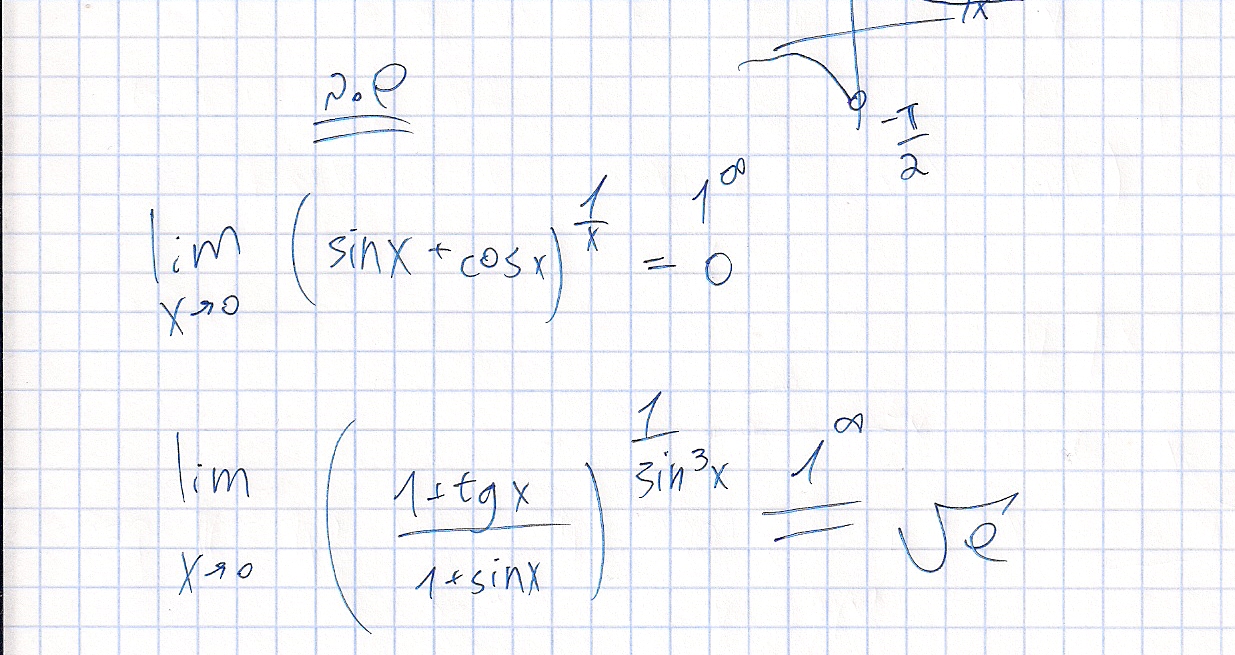 -π/2
lim x→0 (sinx + cosx)^(1/x) = 0 1^∞
lim x→0 ((1+tg x)/(1+sinx))^(1/sin³x) = 1^∞ √e